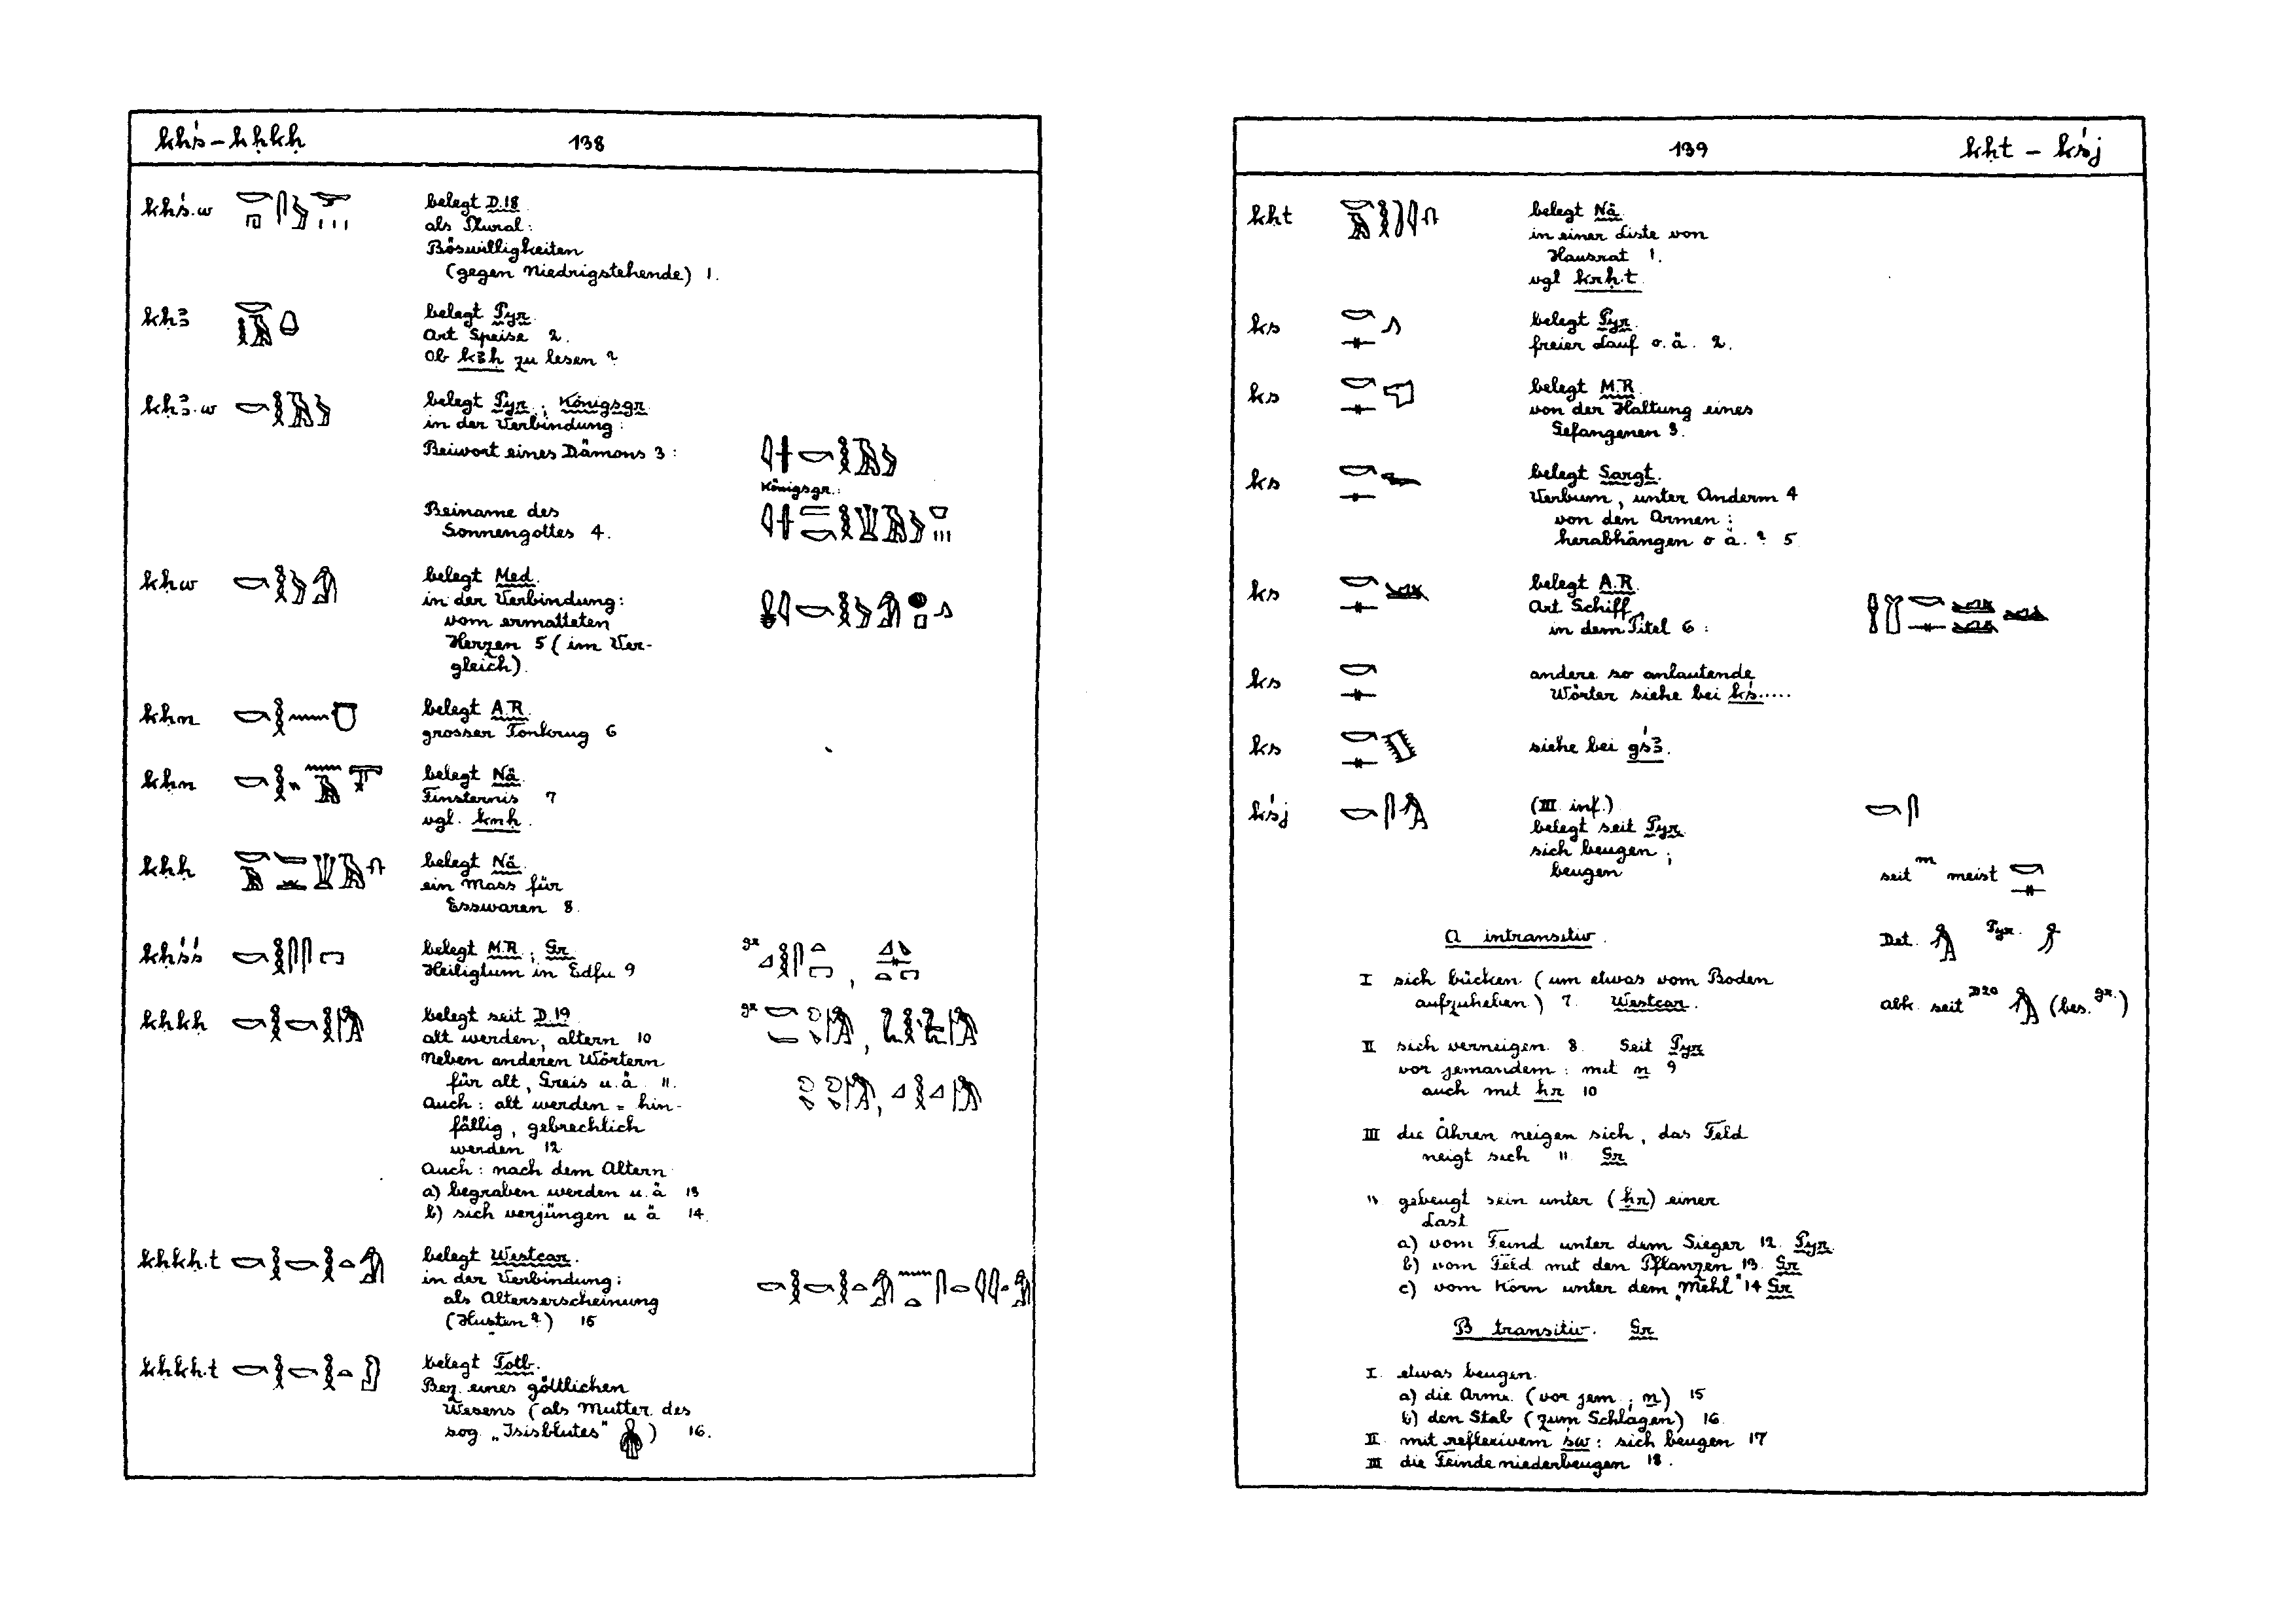 khś – kḥkḥ 138
khś.w belegt D.18
als Plural:
Böswilligkeiten
(gegen Niedrigstehende) 1.
kḥꜣ belegt Pyr.
Art Speise 2.
Ob kꜣḥ zu lesen?
kḥꜣ.w belegt Pyr.; Königsgr.
in der Verbindung:
Beiwort eines Dämons 3:
Königsgr.:
Beiname des
Sonnengottes 4.
kḥw belegt Med.
in der Verbindung:
vom ermatteten
Herzen 5 (im Ver-
gleich).
kḥn belegt A.R.
grosser Tonkrug 6
kḥn belegt Nä.
Finsternis 7
vgl. kmḥ.
kḥḥ belegt Nä.
ein Mass für
Esswaren 8.
kḥśś belegt M.R.; Gr. gr.
Heiligtum in Edfu 9
kḥkḥ belegt seit D.19 gr.
alt werden, altern 10
Neben anderen Wörtern
für alt, Greis u.ä. 11.
Auch: alt werden = hin-
fällig, gebrechlich
werden 12
Auch: nach dem Altern
a) begraben werden u.ä 13
b) sich verjüngen u ä 14.
kḥkḥ.t belegt Westcar.
in der Verbindung:
als Alterserscheinung
(Husten?) 15
kḥkḥ.t belegt Totb.
Bez. eines göttlichen
Wesens (als Mutter des
sog. „Isisblutes" ) 16.
139 kḥt – kśj
kḥt belegt Nä.
in einer Liste von
Hausrat 1.
vgl krḥ.t
ks belegt Pyr.
freier Lauf o.ä. 2.
ks belegt M.R.
von der Haltung eines
Gefangenen 3.
ks belegt Sargt.
Verbum, unter Anderm 4
von den Armen:
herabhängen o ä.? 5
ks belegt A.R.
Art Schiff
in dem Titel 6:
ks andere so anlautende
Wörter siehe bei kś.....
ks siehe bei gśꜣ.
kśj (III inf.)
belegt seit Pyr.
sich beugen;
beugen
seit m meist
A intransitiv.
Det. Pyr.
I sich bücken (um etwas vom Boden
aufzuheben) 7. Westcar.
abk. seit D20 (bes. gr.)
II sich verneigen 8. Seit Pyr
vor jemandem: mit n 9
auch mit ḫr 10
III die Ähren neigen sich, das Feld
neigt sich 11 Gr
IV gebeugt sein unter (ẖr) einer
Last
a) vom Feind unter dem Sieger 12. Pyr.
b) vom Feld mit den Pflanzen 13. Gr
c) vom Korn unter dem „Mehl" 14 Gr
B transitiv. Gr
I. etwas beugen.
a) die Arme (vor jem.; n) 15
b) den Stab (zum Schlagen) 16.
II mit reflexivem św: sich beugen 17
III die Feinde niederbeugen 18.